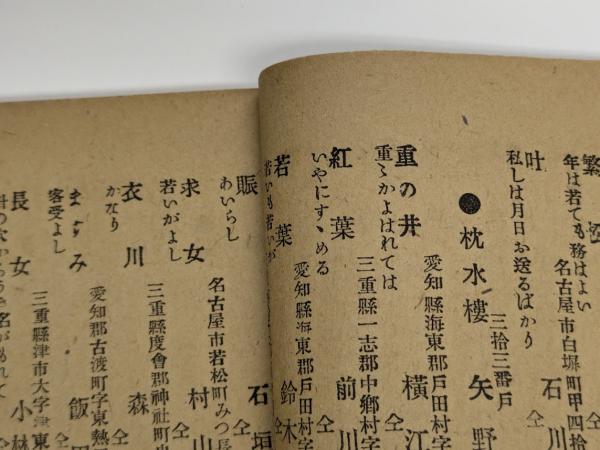 年は若ても務はよい
名古屋市白塀町甲四拾
石川
吐
私しは月日お送るばかり
●枕水樓
三拾三番戸
矢野
重の井
重〻かよはれては
愛知縣海東郡戸田村字
仝
横江
紅葉
いやにすゝめる
三重縣一志郡中郷村字
仝
前川
若葉
若いも若いが
愛知縣海東郡戸田村字
仝
鈴木
賑
あいらし
名古屋市若松町みつ
石垣
求女
若いがよし
仝
村山
衣川
かなり
三重縣度會郡神社町
仝
森
ますみ
客受よし
愛知郡古渡町字東熱
仝
飯
長女
三重縣津市大字津東
仝
小林